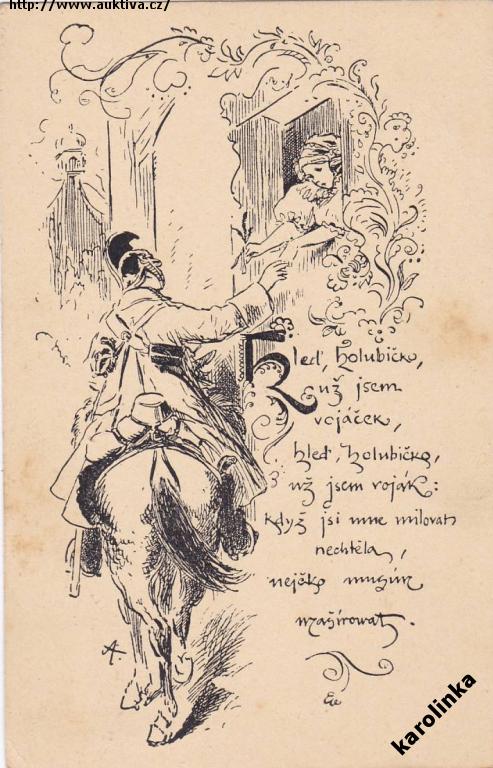 http://www.auktiva.cz/
Hleď, holubičko,
už jsem
vojáček,
hleď, holubičko,
už jsem voják:
když jsi mne milovat
nechtěla,
nejčko musím
mašírovat.
karolinka